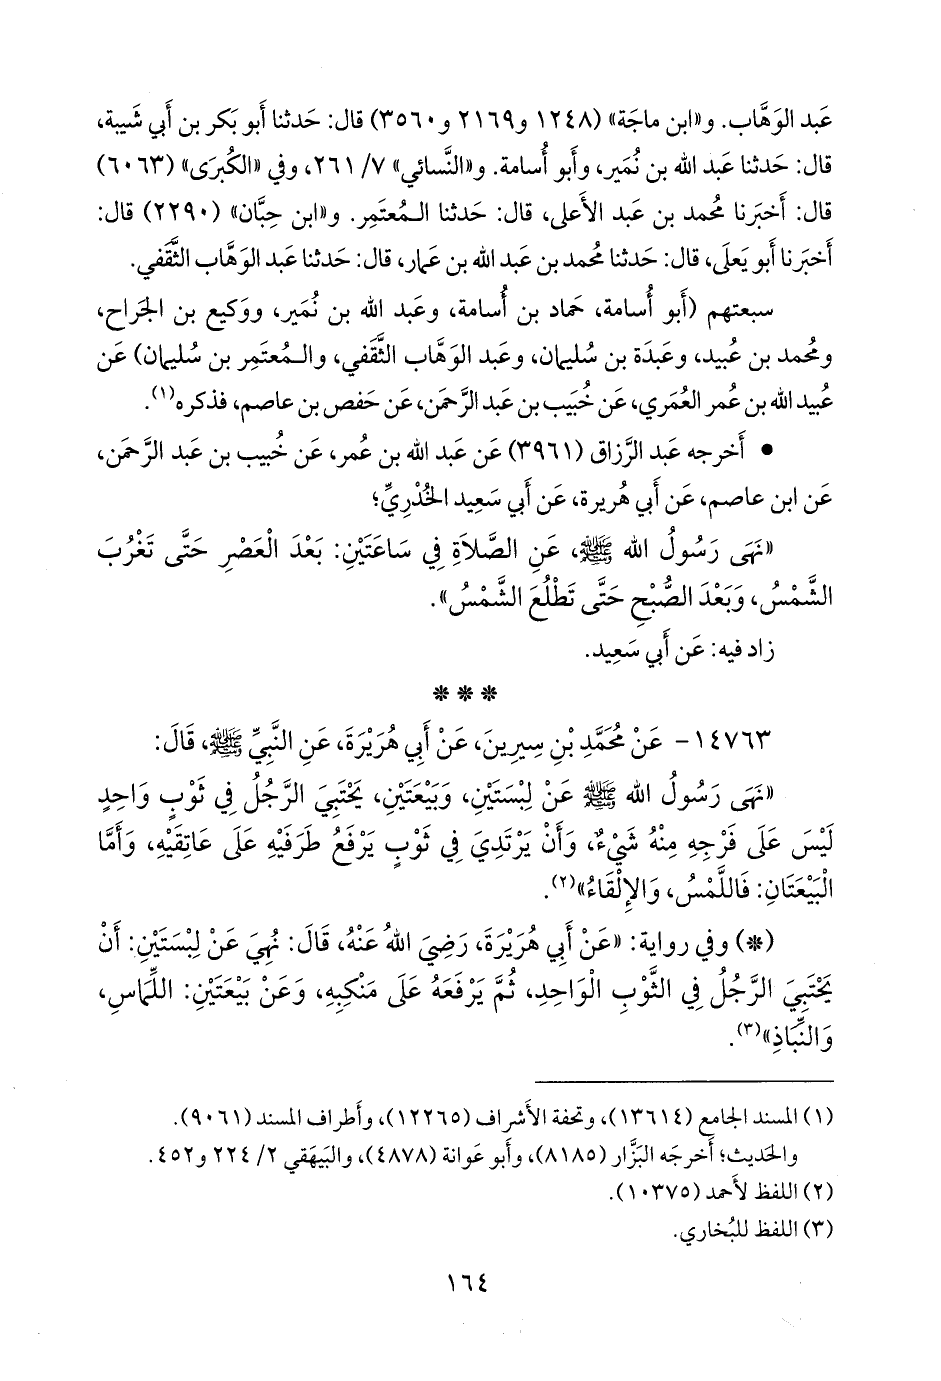 عَبد الوَهَّاب. و«ابن ماجَة» (١٢٤٨ و٢١٦٩ و٣٥٦٠) قال: حَدثنا أَبو بَكر بن أَبي شَيبة،
قال: حَدثنا عَبد الله بن نُمَير، وأَبو أُسامة. و«النَّسائي» ٧/ ٢٦١، وفي «الكُبرَى» (٦٠٦٣)
قال: أَخبَرنا مُحمد بن عَبد الأَعلى، قال: حَدثنا الـمُعتَمِر. و«ابن حِبَّان» (٢٢٩٠) قال:
أَخبَرنا أَبو يَعلَى، قال: حَدثنا مُحمد بن عَبد الله بن عَمار، قال: حَدثنا عَبد الوَهَّاب الثَّقَفي.
سبعتهم (أَبو أُسامة، حَماد بن أُسامة، وعَبد الله بن نُمَير، ووَكيع بن الجَراح،
ومُحمد بن عُبيد، وعَبدَة بن سُليمان، وعَبد الوَهَّاب الثَّقَفي، والـمُعتَمِر بن سُليمان) عَن
عُبيد الله بن عُمر العُمَري، عَن خُبَيب بن عَبد الرَّحمَن، عَن حَفص بن عاصم، فذكره(١).
• أَخرجه عَبد الرَّزاق (٣٩٦١) عَن عَبد الله بن عُمر، عَن خُبيب بن عَبد الرَّحمَن،
عَن ابن عاصم، عَن أَبي هُريرة، عَن أَبي سَعِيد الخُدْرِيِّ؛
«نَهَى رَسُولُ الله ﷺ، عَنِ الصَّلَاةِ فِي سَاعَتَيْنِ: بَعْدَ الْعَصْرِ حَتَّى تَغْرُبَ
الشَّمْسُ، وَبَعْدَ الصُّبْحِ حَتَّى تَطْلُعَ الشَّمْسُ».
زاد فيه: عَن أَبي سَعِيد.
* * *
١٤٧٦٣- عَنْ مُحَمَّدِ بْنِ سِيرِينَ، عَنْ أَبِي هُرَيْرَةَ، عَنِ النَّبِيِّ ﷺ، قَالَ:
«نَهَى رَسُولُ الله ﷺ عَنْ لِبْسَتَيْنِ، وَبَيْعَتَيْنِ، يَحْتَبِيَ الرَّجُلُ فِي ثَوْبٍ وَاحِدٍ
لَيْسَ عَلَى فَرْجِهِ مِنْهُ شَيْءٌ، وَأَنْ يَرْتَدِيَ فِي ثَوْبٍ يَرْفَعُ طَرَفَيْهِ عَلَى عَاتِقَيْهِ، وَأَمَّا
الْبَيْعَتَانِ: فَاللَّمْسُ، وَالإِلْقَاءُ»(٢).
(*) وفي رواية: «عَنْ أَبِي هُرَيْرَةَ، رَضِيَ اللهُ عَنْهُ، قَالَ: نُهِيَ عَنْ لِبْسَتَيْنِ: أَنْ
يَحْتَبِيَ الرَّجُلُ فِي الثَّوْبِ الْوَاحِدِ، ثُمَّ يَرْفَعَهُ عَلَى مَنْكِبِهِ، وَعَنْ بَيْعَتَيْنِ: اللِّمَاسِ،
وَالنِّبَاذِ»(٣).
(١) المسند الجامع (١٣٦١٤)، وتحفة الأَشراف (١٢٢٦٥)، وأَطراف المسند (٩٠٦١).
والحَديث؛ أَخرجَه البَزَّار (٨١٨٥)، وأَبو عَوانة (٤٨٧٨)، والبَيهَقي ٢/ ٢٢٤ و٤٥٢.
(٢) اللفظ لأَحمد (١٠٣٧٥).
(٣) اللفظ للبُخاري.
١٦٤